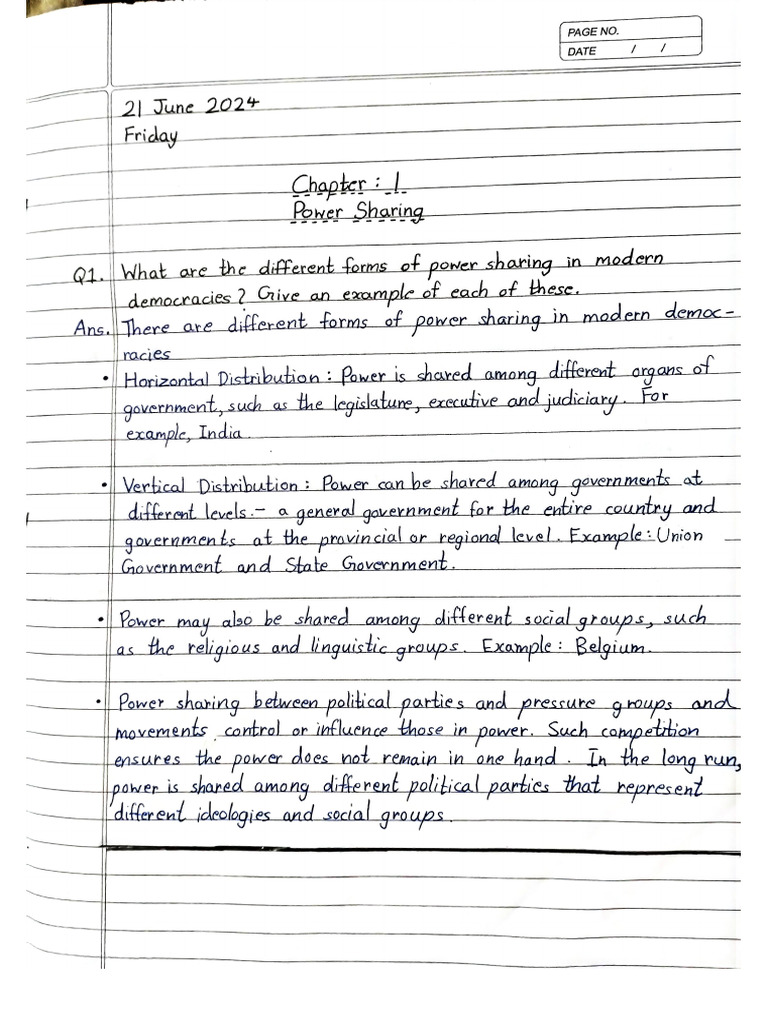 PAGE NO.
DATE / /
21 June 2024
Friday
Chapter : 1
Power Sharing
Q1. What are the different forms of power sharing in modern
democracies? Give an example of each of these.
Ans. There are different forms of power sharing in modern democ-
racies
• Horizontal Distribution : Power is shared among different organs of
government, such as the legislature, executive and judiciary. For
example, India.
• Vertical Distribution : Power can be shared among governments at
different levels.- a general government for the entire country and
governments at the provincial or regional level. Example: Union
Government and State Government.
• Power may also be shared among different social groups, such
as the religious and linguistic groups. Example : Belgium.
• Power sharing between political parties and pressure groups and
movements control or influence those in power. Such competition
ensures the power does not remain in one hand. In the long run,
power is shared among different political parties that represent
different ideologies and social groups.